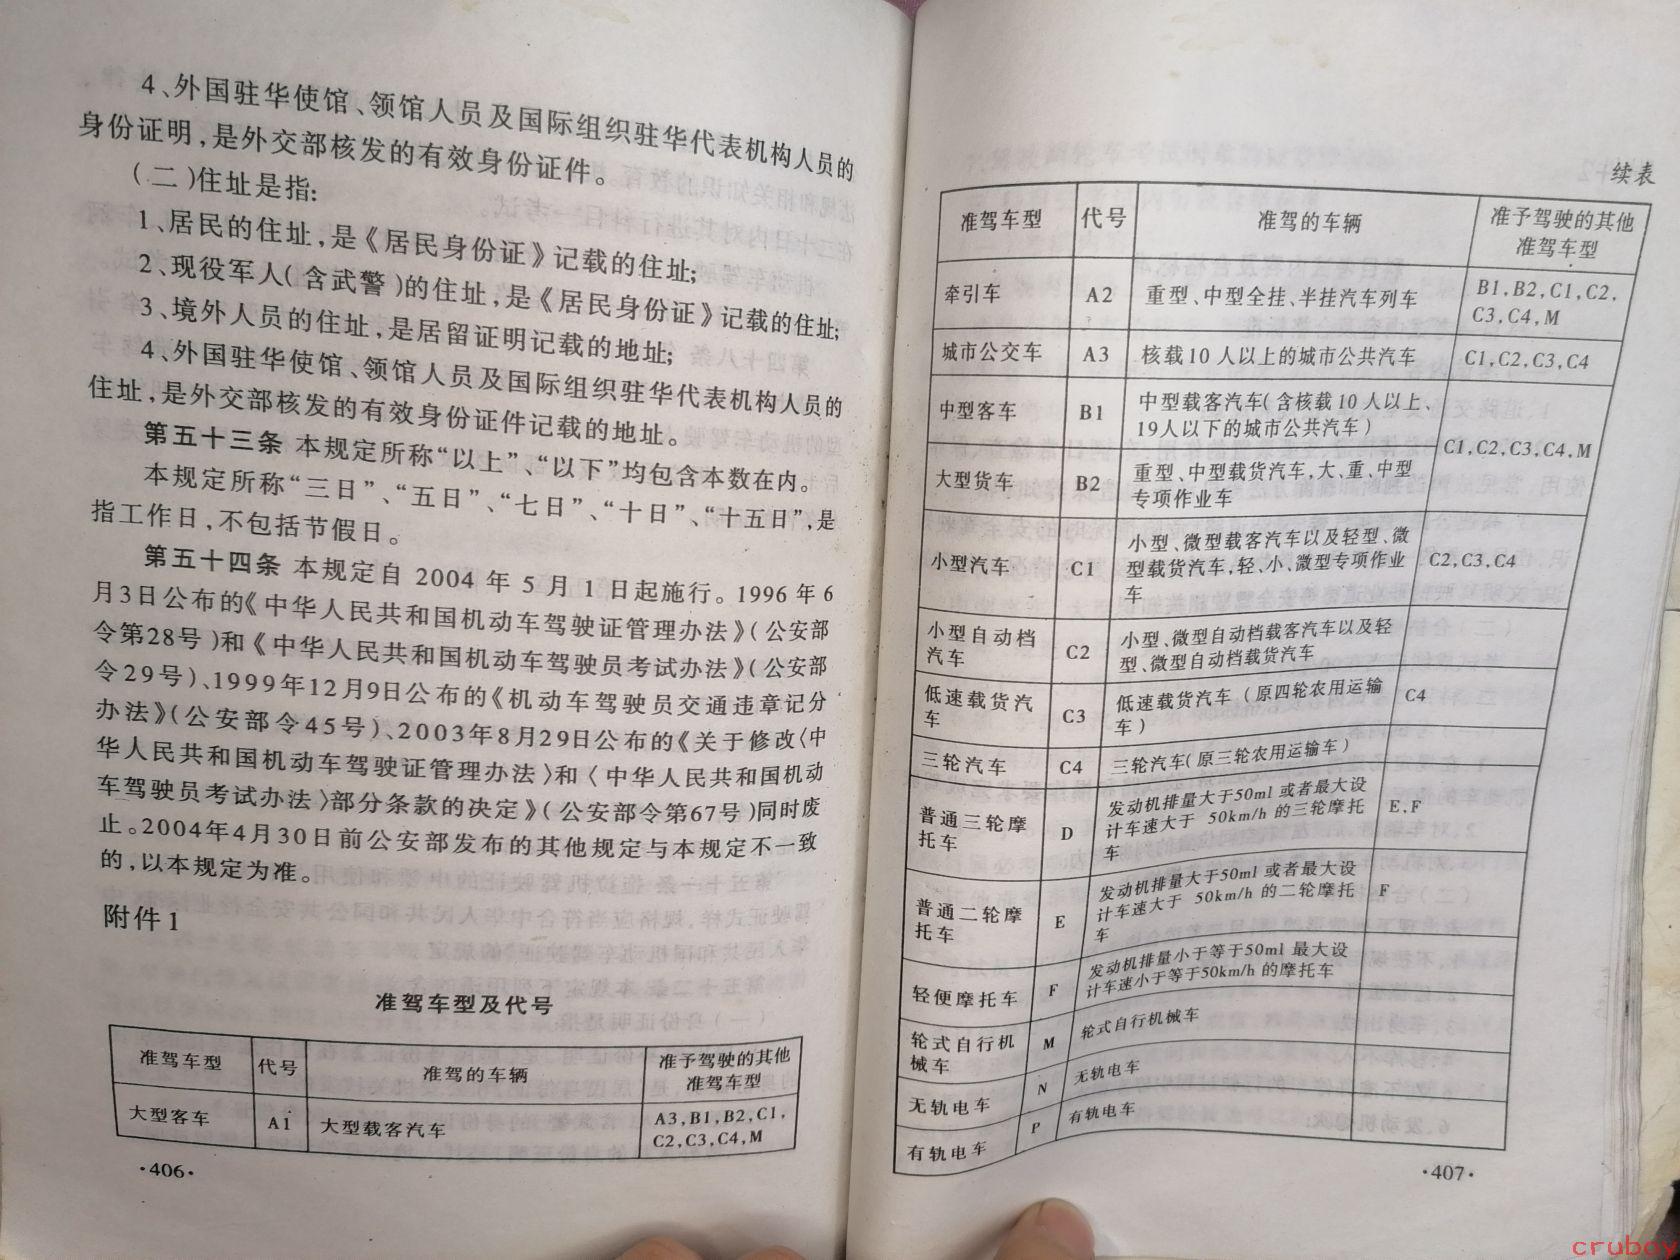 4、外国驻华使馆、领馆人员及国际组织驻华代表机构人员的
身份证明,是外交部核发的有效身份证件。
(二)住址是指:
1、居民的住址,是《居民身份证》记载的住址;
2、现役军人(含武警)的住址,是《居民身份证》记载的住址;
3、境外人员的住址,是居留证明记载的地址;
4、外国驻华使馆、领馆人员及国际组织驻华代表机构人员的
住址,是外交部核发的有效身份证件记载的地址。
第五十三条 本规定所称“以上”、“以下”均包含本数在内。
本规定所称“三日”、“五日”、“七日”、“十日”、“十五日”,是
指工作日,不包括节假日。
第五十四条 本规定自 2004 年 5 月 1 日起施行。1996 年 6
月3日公布的《中华人民共和国机动车驾驶证管理办法》(公安部
令第28号)和《中华人民共和国机动车驾驶员考试办法》(公安部
令29号)、1999年12月9日公布的《机动车驾驶员交通违章记分
办法》(公安部令45号)、2003年8月29日公布的《关于修改〈中
华人民共和国机动车驾驶证管理办法〉和〈中华人民共和国机动
车驾驶员考试办法〉部分条款的决定》(公安部令第67号)同时废
止。2004年4月30日前公安部发布的其他规定与本规定不一致
的,以本规定为准。
附件1
准驾车型及代号
准驾车型 代号 准驾的车辆 准予驾驶的其他
准驾车型
大型客车 A1 大型载客汽车 A3,B1,B2,C1,
C2,C3,C4,M
·406·
续表
准驾车型 代号 准驾的车辆 准予驾驶的其他
准驾车型
牵引车 A2 重型、中型全挂、半挂汽车列车 B1,B2,C1,C2,
C3,C4,M
城市公交车 A3 核载10人以上的城市公共汽车 C1,C2,C3,C4
中型客车 B1 中型载客汽车(含核载10人以上、
19人以下的城市公共汽车)
C1,C2,C3,C4,M
大型货车 B2 重型、中型载货汽车,大、重、中型
专项作业车
小型汽车 C1 小型、微型载客汽车以及轻型、微
型载货汽车,轻、小、微型专项作业
车
C2,C3,C4
小型自动档
汽车
C2 小型、微型自动档载客汽车以及轻
型、微型自动档载货汽车
低速载货汽
车
C3 低速载货汽车(原四轮农用运输
车)
C4
三轮汽车 C4 三轮汽车(原三轮农用运输车)
普通三轮摩
托车
D 发动机排量大于50ml 或者最大设
计车速大于 50km/h 的三轮摩托
车
E,F
普通二轮摩
托车
E 发动机排量大于50ml 或者最大设
计车速大于 50km/h 的二轮摩托
车
F
轻便摩托车 F 发动机排量小于等于50ml 最大设
计车速小于等于50km/h 的摩托车
轮式自行机
械车
M 轮式自行机械车
无轨电车 N 无轨电车
有轨电车 P 有轨电车
·407·
cruboy